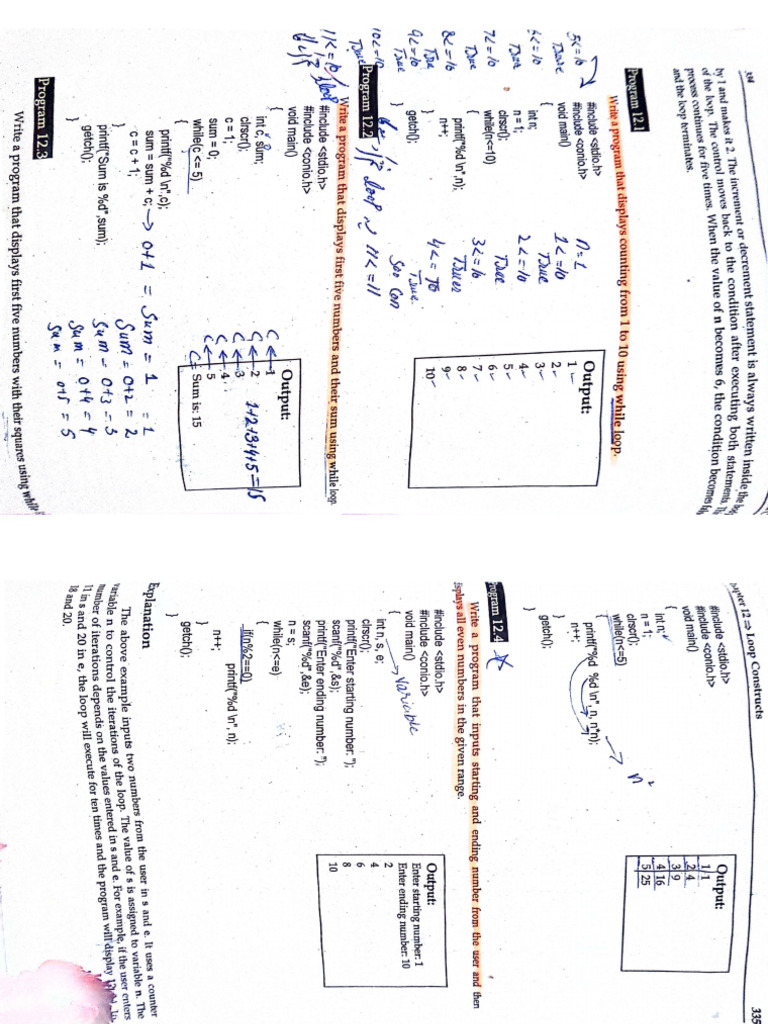 334
by 1 and makes it 2. The increment or decrement statement is always written inside the
of the loop. The control moves back to the condition after executing both statements.
process continues for five times. When the value of n becomes 6, the condition becomes
and the loop terminates.
Program 12.1
Write a program that displays counting from 1 to 10 using while loop.
#include <stdio.h>
#include <conio.h>
void main()
{
int n;
n = 1;
clrscr();
while(n<=10)
{
printf("%d \n",n);
n++;
}
getch();
}
Output:
1
2
3
4
5
6
7
8
9
10
5<=10
True
6<=10
True
7<=10
8<=10
True
9<=10
True
10<=10
True
11<=10
loop
n=1
1<=10
True
2<=10
True
3<=10
4<=10
True
loop
11<=11
Program 12.2
Write a program that displays first five numbers and their sum using while loop.
#include <stdio.h>
#include <conio.h>
void main()
{
int c, sum;
clrscr();
c = 1;
sum = 0;
while(c <= 5)
{
printf("%d \n",c);
sum = sum + c; → 0+1 = Sum = 1 = 1
c = c + 1;
}
printf("Sum is %d",sum);
getch();
}
Sum = 0+2 = 2
Sum = 0+3 = 3
Sum = 0+4 = 4
Sum = 0+5 = 5
Output:
C ← 1
C ← 2
C ← 3
C ← 4
C ← 5
C = Sum is: 15
1+2+3+4+5=15
Program 12.3
Write a program that displays first five numbers with their squares using while
Chapter 12 ⇒ Loop Constructs
335
#include <stdio.h>
#include <conio.h>
void main()
{
int n;
n = 1;
clrscr();
while(n<=5)
{
printf("%d %d \n", n, n*n);
n++;
}
getch();
}
n²
Output:
1 1
2 4
3 9
4 16
5 25
Program 12.4
Write a program that inputs starting and ending number from the user and then
displays all even numbers in the given range.
#include <stdio.h>
#include <conio.h>
void main()
{
int n, s, e; → variable
clrscr();
printf("Enter starting number: ");
scanf("%d",&s);
printf("Enter ending number: ");
scanf("%d",&e);
n = s;
while(n<=e)
{
if(n%2==0)
printf("%d \n", n);
n++;
}
getch();
}
Output:
Enter starting number: 1
Enter ending number: 10
2
4
6
8
10
Explanation
The above example inputs two numbers from the user in s and e. It uses a counter
variable n to control the iterations of the loop. The value of s is assigned to variable n. The
number of iterations depends on the values entered in s and e. For example, if the user enters
11 in s and 20 in e, the loop will execute for ten times and the program will display 12, 14, 16,
18 and 20.